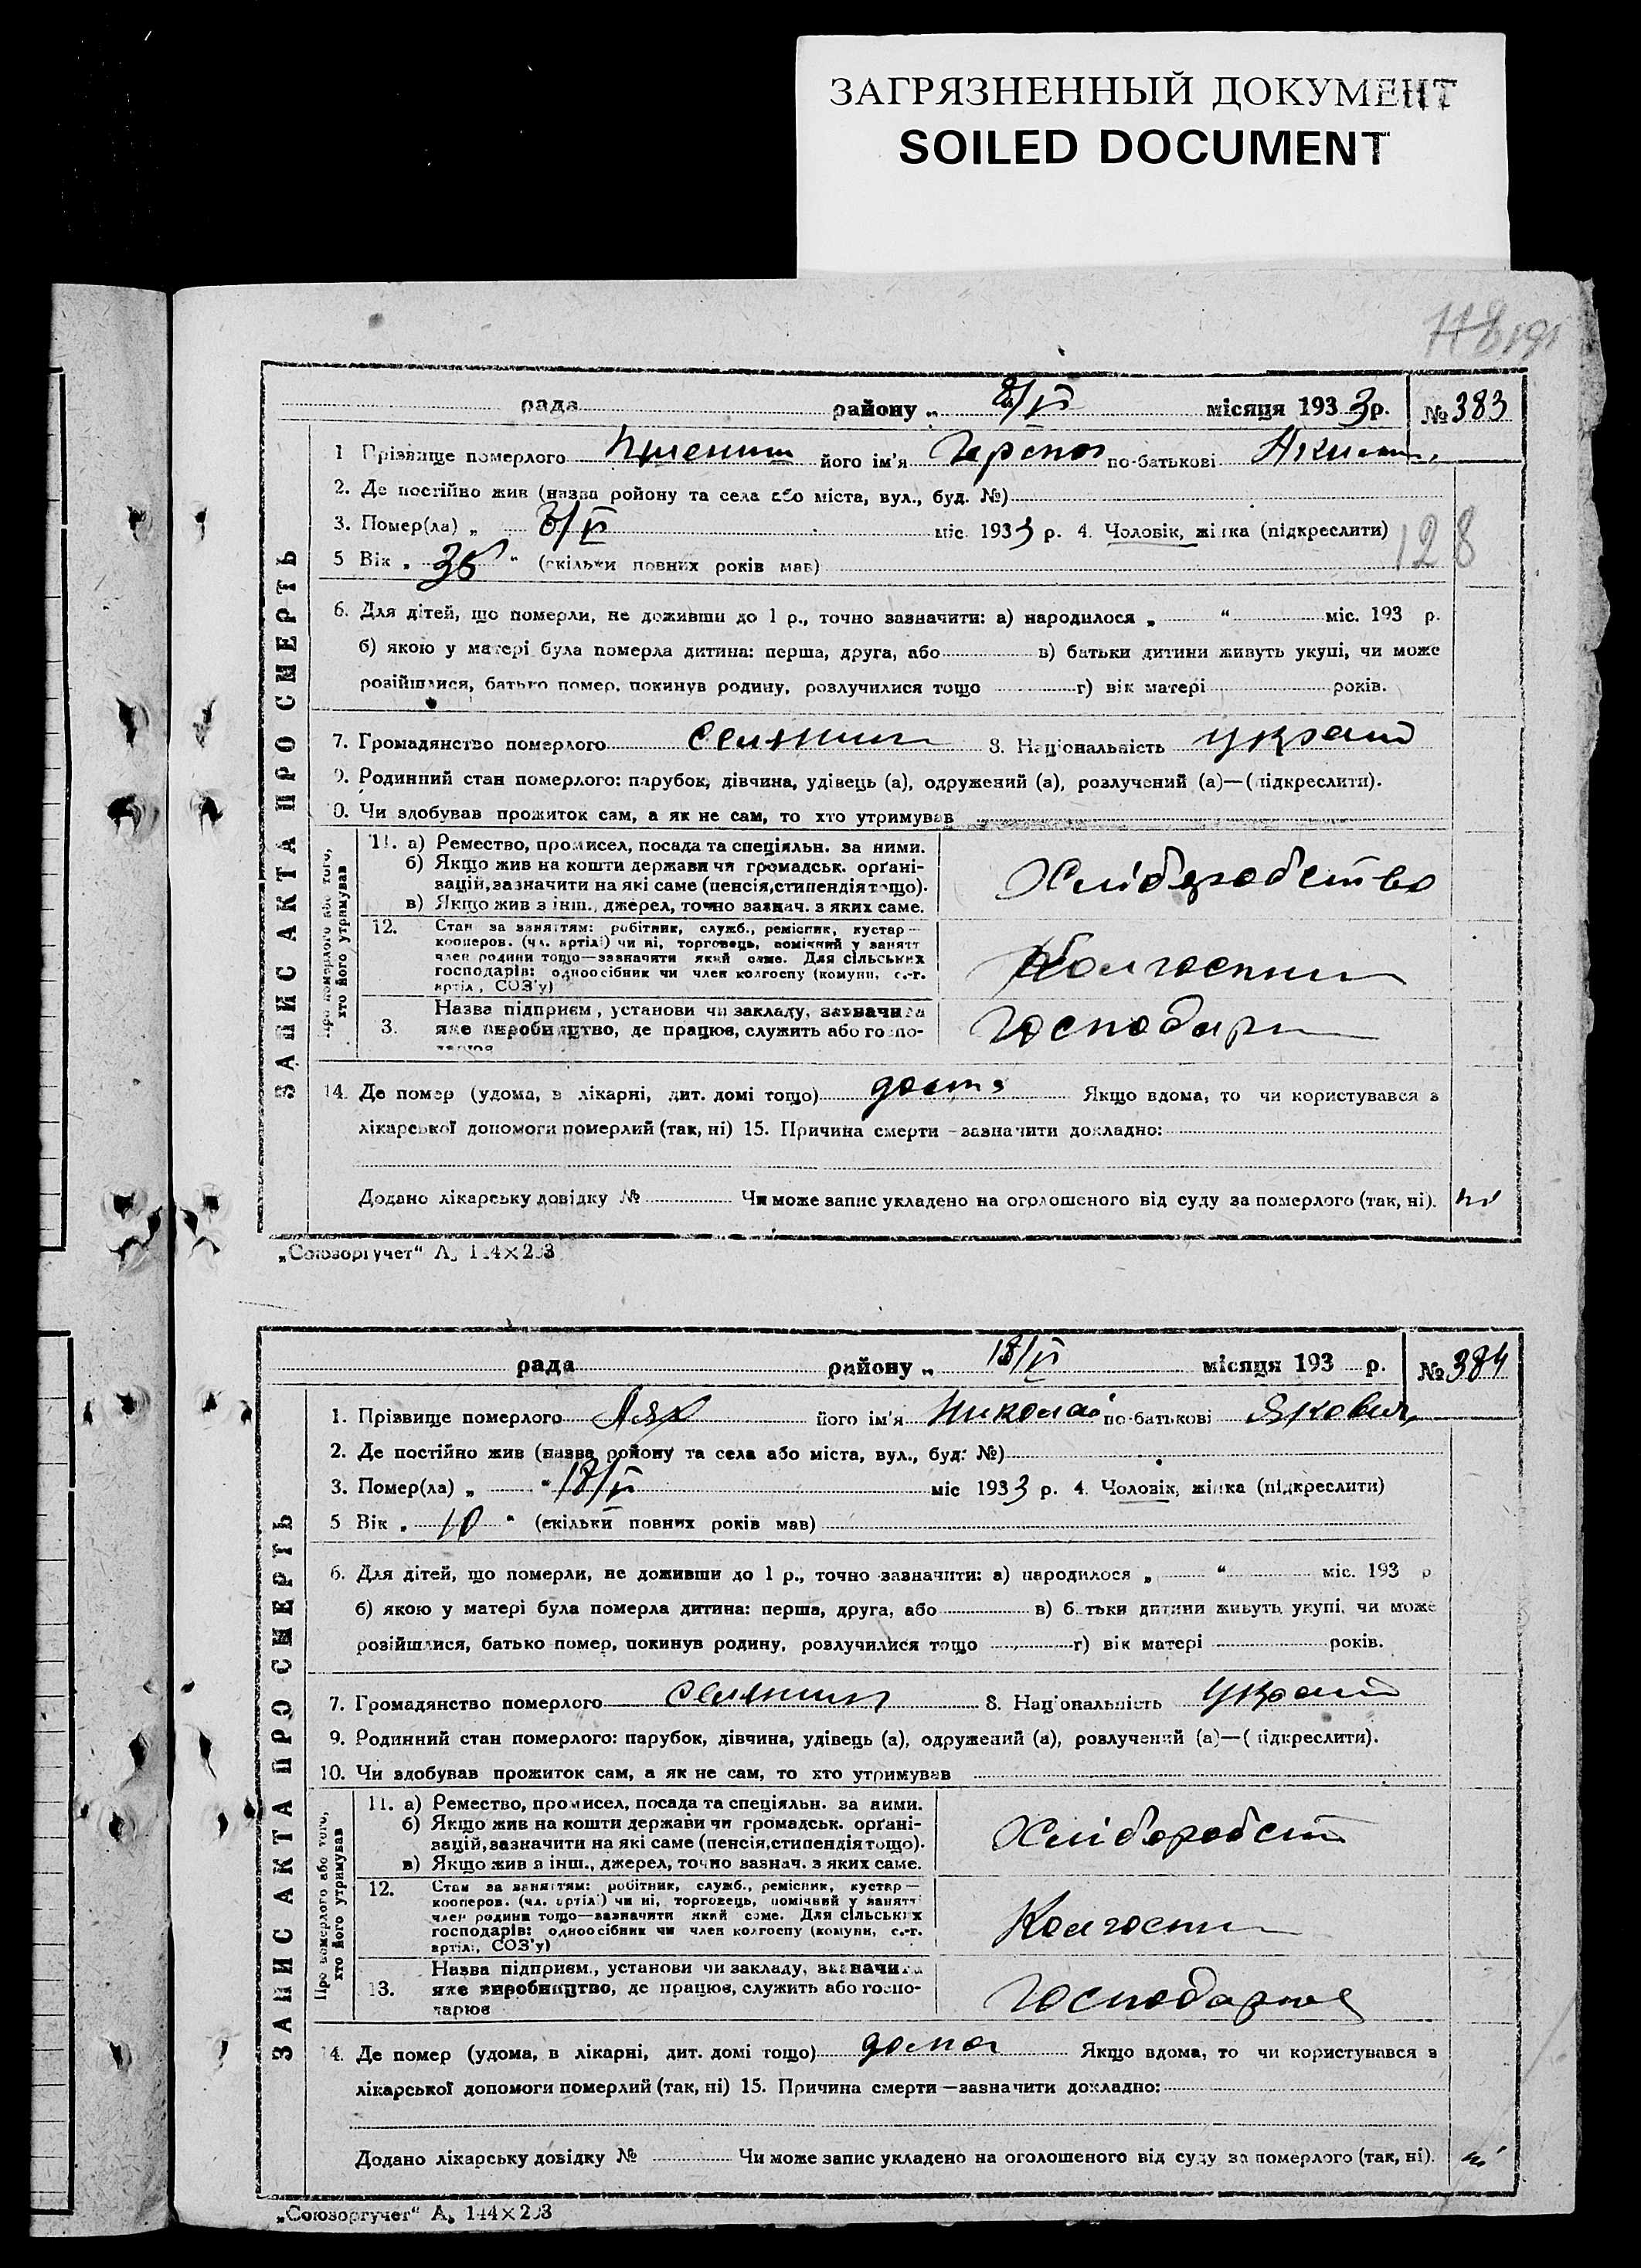 ЗАГРЯЗНЕННЫЙ ДОКУМЕНТ
SOILED DOCUMENT
191
ЗАПИС АКТА ПРО СМЕРТЬ
рада району „ /VI місяця 1933 р. № 383
1 Прізвище померлого його ім'я по-батькові
2. Де постійно жив (назва ройону та села або міста, вул., буд. №)
3. Помер(ла) „ /VI міс. 1933 р. 4. Чоловік, жінка (підкреслити) 128
5 Вік „ 35 “ (скільки повних років мав)
6. Для дітей, що померли, не доживши до 1 р., точно зазначити: а) народилося „ “ міс. 193 р.
б) якою у матері була померла дитина: перша, друга, або в) батьки дитини живуть укупі, чи може
розійшлися, батько помер, покинув родину, розлучилися тощо г) вік матері років.
7. Громадянство померлого селянин 8. Національність україн
9. Родинний стан померлого: парубок, дівчина, удівець (а), одружений (а), розлучений (а)—(підкреслити).
10. Чи здобував прожиток сам, а як не сам, то хто утримував
Про померлого або того,
хто його утримував
11. а) Ремество, промисел, посада та спеціяльн. за ними.
б) Якщо жив на кошти держави чи громадськ. орґані-
зацій, зазначити на які саме (пенсія, стипендія тощо).
в) Якщо жив з інш., джерел, точно зазнач. з яких саме.
Хліборобство
12. Стан за заняттям: робітник, служб., ремісник, кустар—
кооперов. (чл. артілі) чи ні, торговець, помічний у занятт
член родини тощо—зазначити який саме. Для сільських
господарів: одноосібник чи член колгоспу (комуни, с.-г.
артіл., СОЗ'у)
Колгоспник
13. Назва підприєм., установи чи закладу, зазначити
яке виробництво, де працює, служить або госпо-
дарює
14. Де помер (удома, в лікарні, дит. домі тощо) дома Якщо вдома, то чи користувався з
лікарської допомоги померлий (так, ні) 15. Причина смерти—зазначити докладно:
Додано лікарську довідку № Чи може запис укладено на оголошеного від суду за померлого (так, ні). ні
„Союзоргучет“ 
ЗАПИС АКТА ПРО СМЕРТЬ
рада району „ 18/VI місяця 193 р. № 384
1. Прізвище померлого Лях його ім'я Николай по-батькові Якович
2. Де постійно жив (назва ройону та села або міста, вул., буд. №)
3. Помер(ла) „ “ /VI міс 1933 р. 4. Чоловік, жінка (підкреслити)
5 Вік „ 10 “ (скільки повних років мав)
6. Для дітей, що померли, не доживши до 1 р., точно зазначити: а) народилося „ “ міс. 193 р
б) якою у матері була померла дитина: перша, друга, або в) батьки дитини живуть укупі, чи може
розійшлися, батько помер, покинув родину, розлучилися тощо г) вік матері років.
7. Громадянство померлого селянин 8. Національність україн
9. Родинний стан померлого: парубок, дівчина, удівець (а), одружений (а), розлучений (а)—(підкреслити).
10. Чи здобував прожиток сам, а як не сам, то хто утримував
Про померлого або того,
хто його утримував
11. а) Ремество, промисел, посада та спеціяльн. за ними.
б) Якщо жив на кошти держави чи громадськ. орґані-
зацій, зазначити на які саме (пенсія, стипендія тощо).
в) Якщо жив з інш., джерел, точно зазнач. з яких саме.
Хліборобст
12. Стан за заняттям: робітник, служб., ремісник, кустар—
кооперов. (чл. артілі) чи ні, торговець, помічний у занятті
член родини тощо—зазначити який саме. Для сільських
господарів: одноосібник чи член колгоспу (комуни, с.-г.
артіл., СОЗ'у)
Колгоспн
13. Назва підприєм., установи чи закладу, зазначити
яке виробництво, де працює, служить або госпо-
дарює
Господарює
14. Де помер (удома, в лікарні, дит. домі тощо) дома Якщо вдома, то чи користувався з
лікарської допомоги померлий (так, ні) 15. Причина смерти—зазначити докладно:
Додано лікарську довідку № Чи може запис укладено на оголошеного від суду за померлого (так, ні). ні
„Союзоргучет“